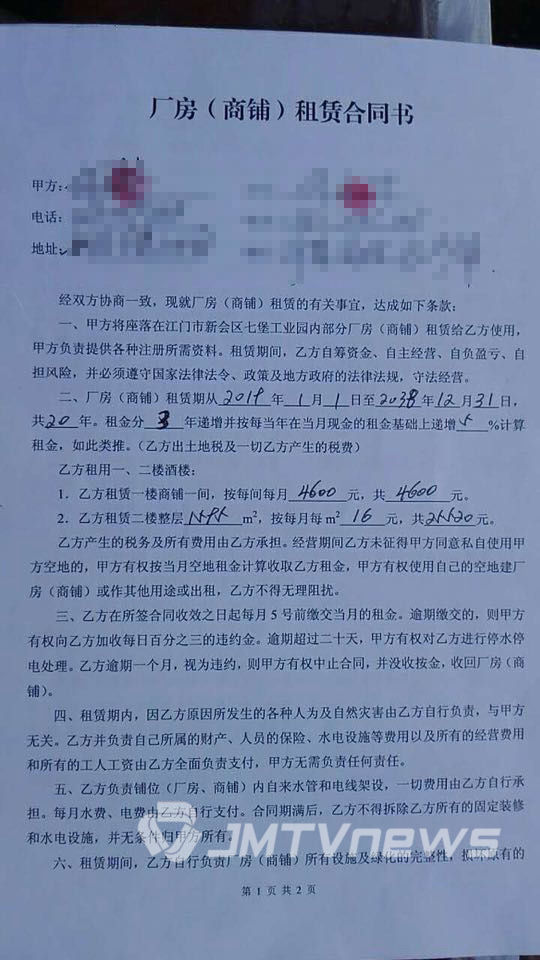 厂房（商铺）租赁合同书
甲方：
电话：
地址：
经双方协商一致，现就厂房（商铺）租赁的有关事宜，达成如下条款：
一、甲方将座落在江门市新会区七堡工业园内部分厂房（商铺）租赁给乙方使用，
甲方负责提供各种注册所需资料。租赁期间，乙方自筹资金、自主经营、自负盈亏、自
担风险，并必须遵守国家法律法令、政策及地方政府的法律法规，守法经营。
二、厂房（商铺）租赁期从2019年1月1日至2038年12月31日，
共20年。租金分3年递增并按每当年在当月现金的租金基础上递增5%计算
租金，如此类推。（乙方出土地税及一切乙方产生的税费）
乙方租用一、二楼酒楼：
1．乙方租赁一楼商铺一间，按每间每月4600元，共4600元。
2．乙方租赁二楼整层1595m²，按每月每m²16元，共25520元。
乙方产生的税务及所有费用由乙方承担。经营期间乙方未征得甲方同意私自使用甲
方空地的，甲方有权按当月空地租金计算收取乙方租金，甲方有权使用自己的空地建厂
房（商铺）或作其他用途或出租，乙方不得无理阻扰。
三、乙方在所签合同收效之日起每月5号前缴交当月的租金。逾期缴交的，则甲方
有权向乙方加收每日百分之三的违约金。逾期超过二十天，甲方有权对乙方进行停水停
电处理。乙方逾期一个月，视为违约，则甲方有权中止合同，并没收按金，收回厂房（商
铺）。
四、租赁期内，因乙方原因所发生的各种人为及自然灾害由乙方自行负责，与甲方
无关。乙方并负责自己所属的财产、人员的保险、水电设施等费用以及所有的经营费用
和所有的工人工资由乙方全面负责支付，甲方无需负责任何责任。
五、乙方负责铺位（厂房、商铺）内自来水管和电线架设，一切费用由乙方自行承
担。每月水费、电费由乙方自行支付。合同期满后，乙方不得拆除乙方所有的固定装修
和水电设施，并无条件归甲方所有。
六、租赁期间，乙方自行负责厂房（商铺）所有设施及绿化的完整性，损坏原有的
JMTVnews
第1页共2页